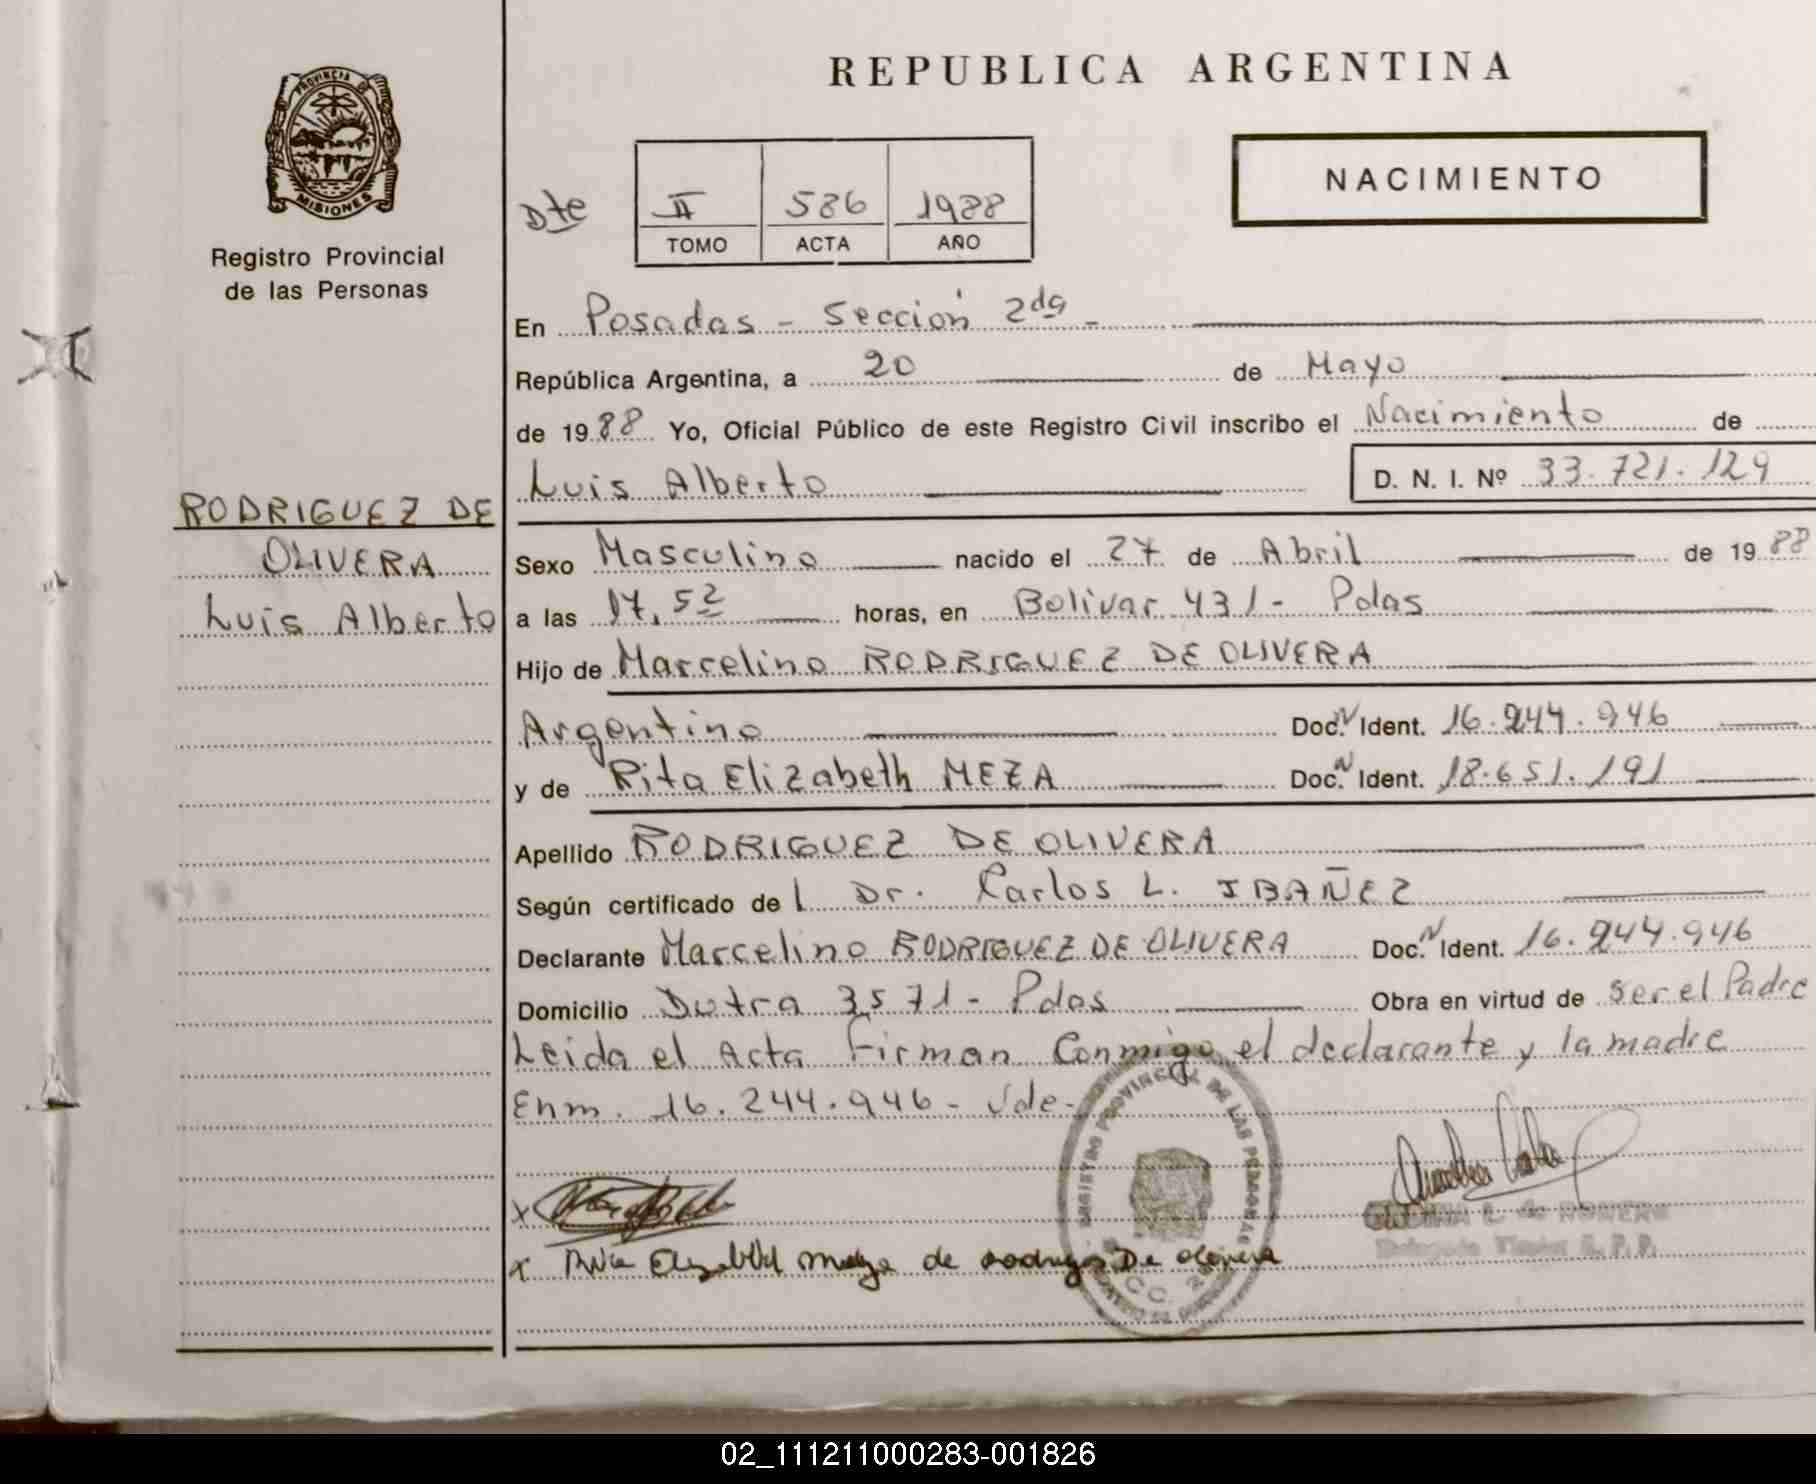 REPUBLICA ARGENTINA
PROVINCIA DE
MISIONES
Registro Provincial
de las Personas
NACIMIENTO
Dte
II 586 1988
TOMO ACTA AÑO
En Posadas - Sección 2da -
República Argentina, a 20 de Mayo
de 1988 Yo, Oficial Público de este Registro Civil inscribo el Nacimiento de
Luis Alberto D. N. I. Nº 33.721.129
RODRIGUEZ DE
OLIVERA
Luis Alberto
Sexo Masculino nacido el 27 de Abril de 1988
a las 17,52 horas, en Bolivar 431 - Pdas
Hijo de Marcelino RODRIGUEZ DE OLIVERA
Argentino Doc. N Ident. 16.244.946
y de Rita Elizabeth MEZA Doc. N Ident. 18.651.191
Apellido RODRIGUEZ DE OLIVERA
Según certificado de l Dr. Carlos L. IBAÑEZ
Declarante Marcelino RODRIGUEZ DE OLIVERA Doc. N Ident. 16.244.946
Domicilio Dutra 3571 - Pdas Obra en virtud de ser el Padre
Leida el Acta Firman Conmigo el declarante y la madre
Enm. 16.244.946 - Vale -
REGISTRO PROVINCIAL DE LAS PERSONAS
x
x Rita Elizabeth Meza de Rodrigez De Olivera
02_111211000283-001826